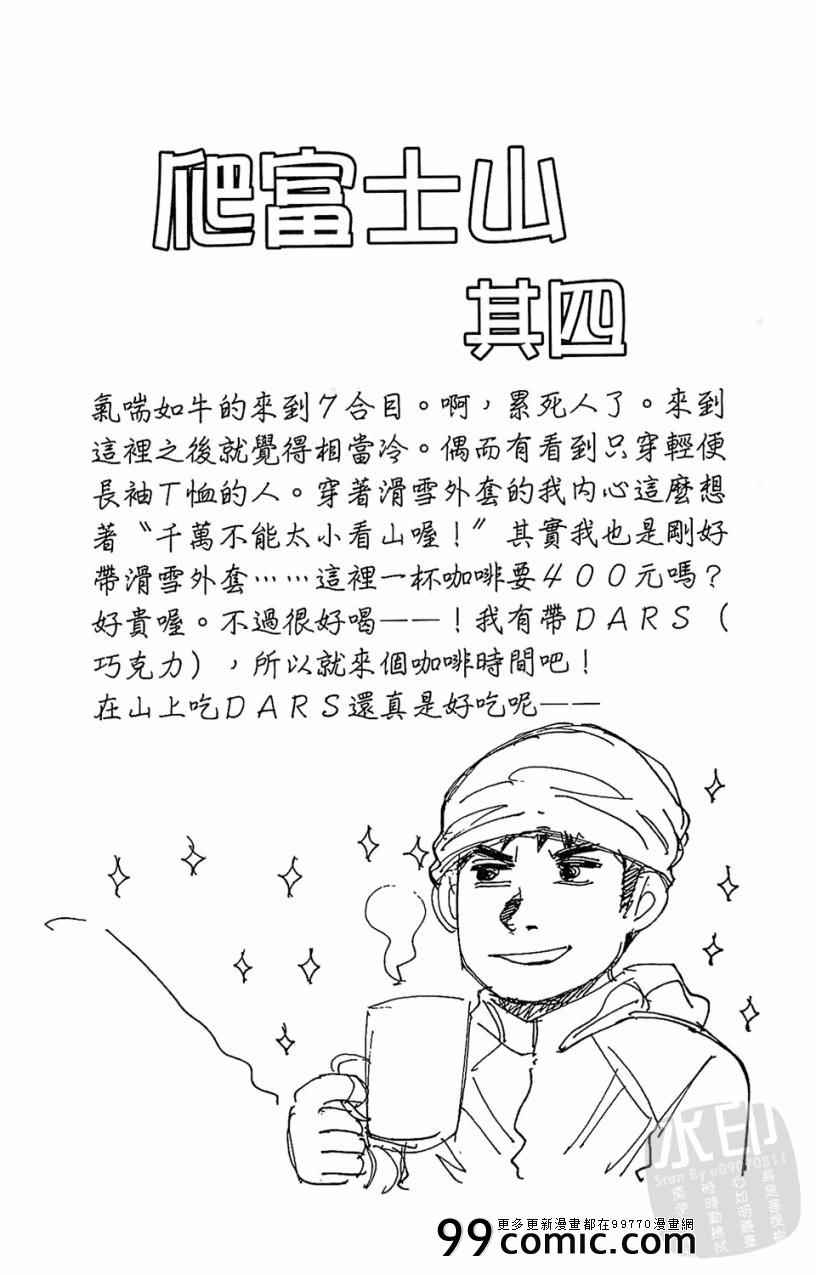 爬富士山
其四
氣喘如牛的來到7合目。啊，累死人了。來到
這裡之後就覺得相當冷。偶而有看到只穿輕便
長袖T恤的人。穿著滑雪外套的我內心這麼想
著〝千萬不能太小看山喔！〞其實我也是剛好
帶滑雪外套……這裡一杯咖啡要400元嗎？
好貴喔。不過很好喝——！我有帶DARS（
巧克力），所以就來個咖啡時間吧！
在山上吃DARS還真是好吃呢——
水印
更多更新漫畫都在99770漫畫網
99comic.com